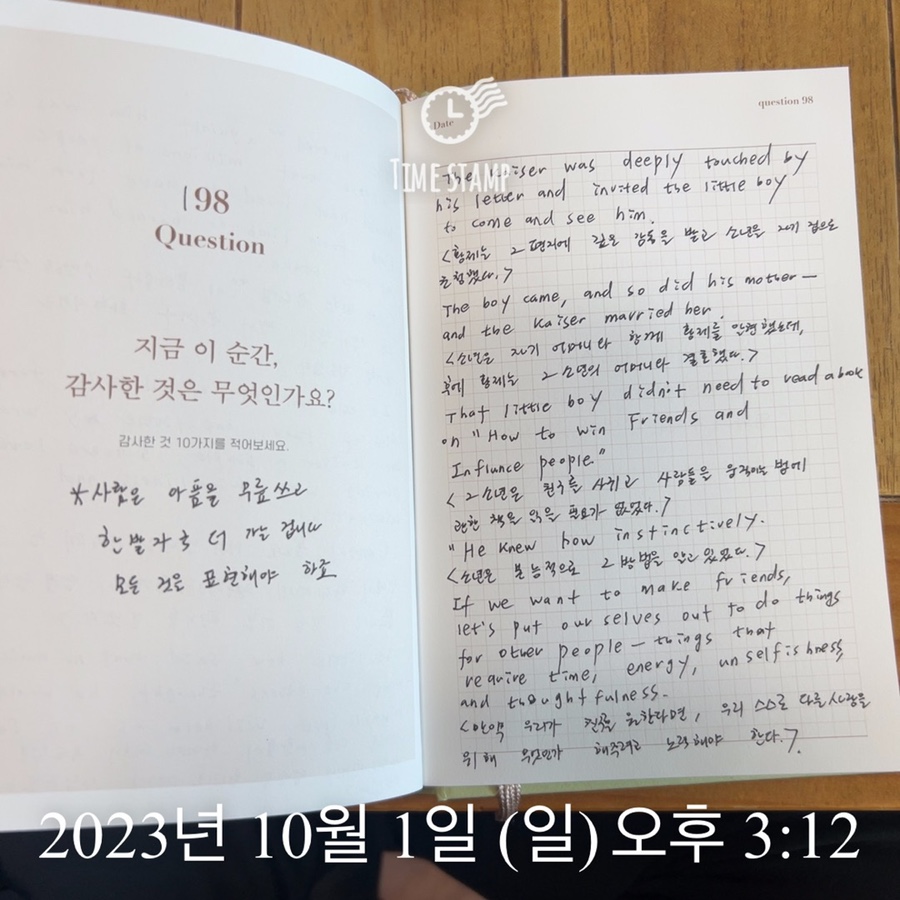 198
Question
지금 이 순간,
감사한 것은 무엇인가요?
감사한 것 10가지를 적어보세요.
*사람은 아픔을 무릅쓰고
한발자국 더 가는 겁니다
모든 것을 표현해야 하고
question 98
Date
TIME STAMP
The Kaiser was deeply touched by
his letter and invited the little boy
to come and see him.
<황제는 그 편지에 깊은 감동을 받고 소년을 자기 집으로
초청했다.>
The boy came, and so did his mother—
and the Kaiser married her.
<소년은 자기 어머니와 함께 황제를 알현했는데,
후에 황제는 그 소년의 어머니와 결혼했다.>
That little boy didn't need to read a book
on "How to win Friends and
Influnce people."
<그 소년은 친구를 사귀고 사람들을 움직이는 법에
관한 책을 읽을 필요가 없었다.>
"He knew how instinctively.
<소년은 본능적으로 그 방법을 알고 있었다.>
If we want to make friends,
let's put our selves out to do things
for other people—things that
require time, energy, unselfishness,
and thoughtfulness.
<만약 우리가 친구를 원한다면, 우리 스스로 다른 사람을
위해 무엇인가 해주려고 노력해야 한다.>.
2023년 10월 1일 (일) 오후 3:12